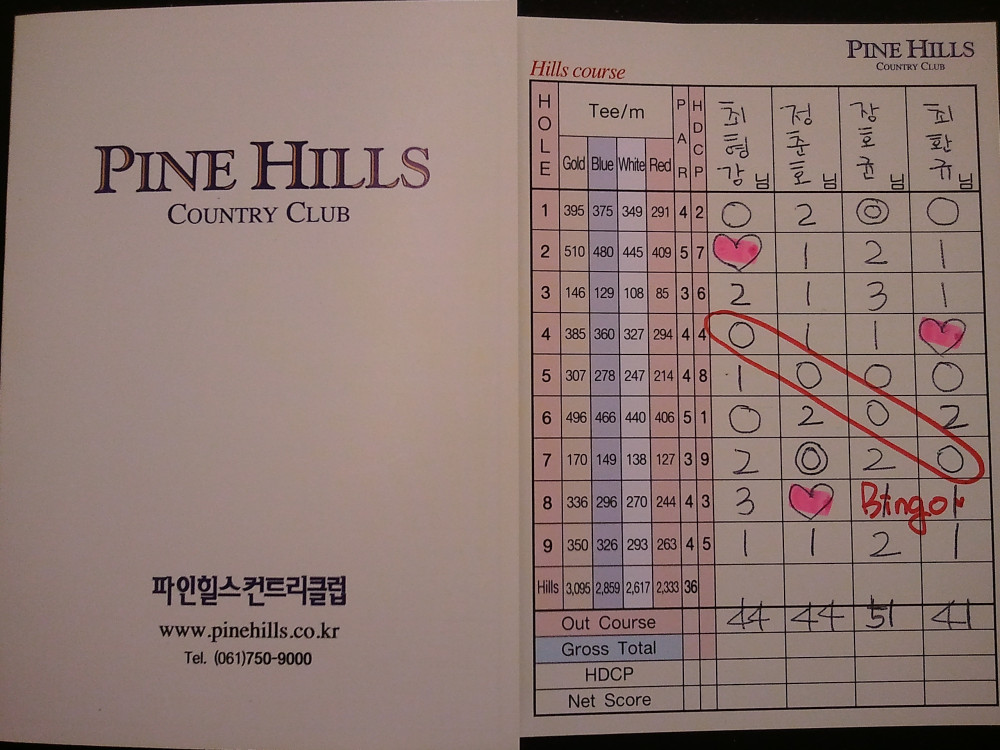 PINE HILLS
COUNTRY CLUB
파인힐스컨트리클럽
www.pinehills.co.kr
Tel. (061)750-9000
PINE HILLS
COUNTRY CLUB
Hills course
HOLE Tee/m PAR HDCP 정준호 님 장호균 님 최환규 님
Gold Blue White Red 최 강 님
1 395 375 349 291 4 2 0 2 ◎ 0
2 510 480 445 409 5 7 ♥ 1 2 1
3 146 129 108 85 3 6 2 1 3 1
4 385 360 327 294 4 4 0 1 1 ♥
5 307 278 247 214 4 8 1 0 0 0
6 496 466 440 406 5 1 0 2 0 2
7 170 149 138 127 3 9 2 ◎ 2 0
8 336 296 270 244 4 3 3 ♥ Bingo! 1
9 350 326 293 263 4 5 1 1 2 1
Hills 3,095 2,859 2,617 2,333 36
Out Course 44 44 51 41
Gross Total
HDCP
Net Score